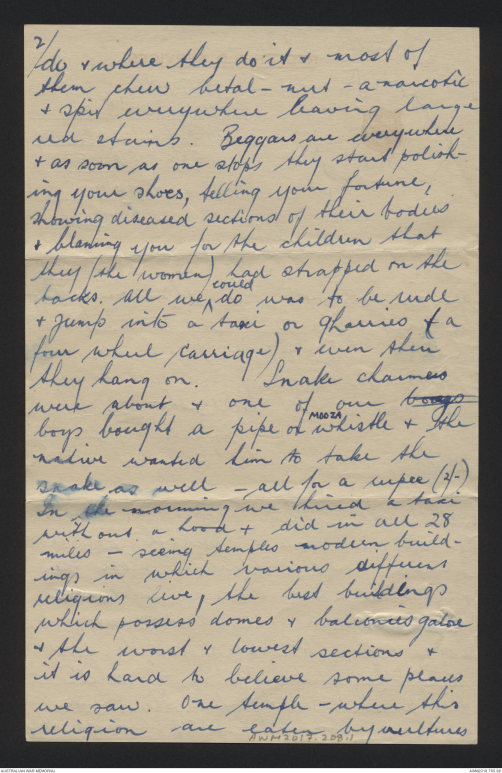 2/
do & where they do it & most of
them chew betal-nut - a narcotic
& spit everywhere leaving large
red stains. Beggars are everywhere
& as soon as one stops they start polish-
ing your shoes, telling your fortune,
showing diseased sections of their bodies
& blaming you for the children that
they (the women) had strapped on the
backs. All we could do was to be rude
& jump into a taxi or gharries (a
four wheel carriage) & even then
they hang on. Snake charmers
were about & one of our boys
boys bought a pipe or MOOZA whistle & the
native wanted him to take the
snake as well - all for a rupee (2/-)
In the morning we hired a taxi
without a hood & did in all 28
miles - seeing temples modern build-
ings in which various different
religions live, the best buildings
which possess domes & balconies galore
& the worst & lowest sections &
it is hard to believe some places
we saw. One temple - where this
religion are eaten by vultures
AWM2017.208.1
AUSTRALIAN WAR MEMORIAL